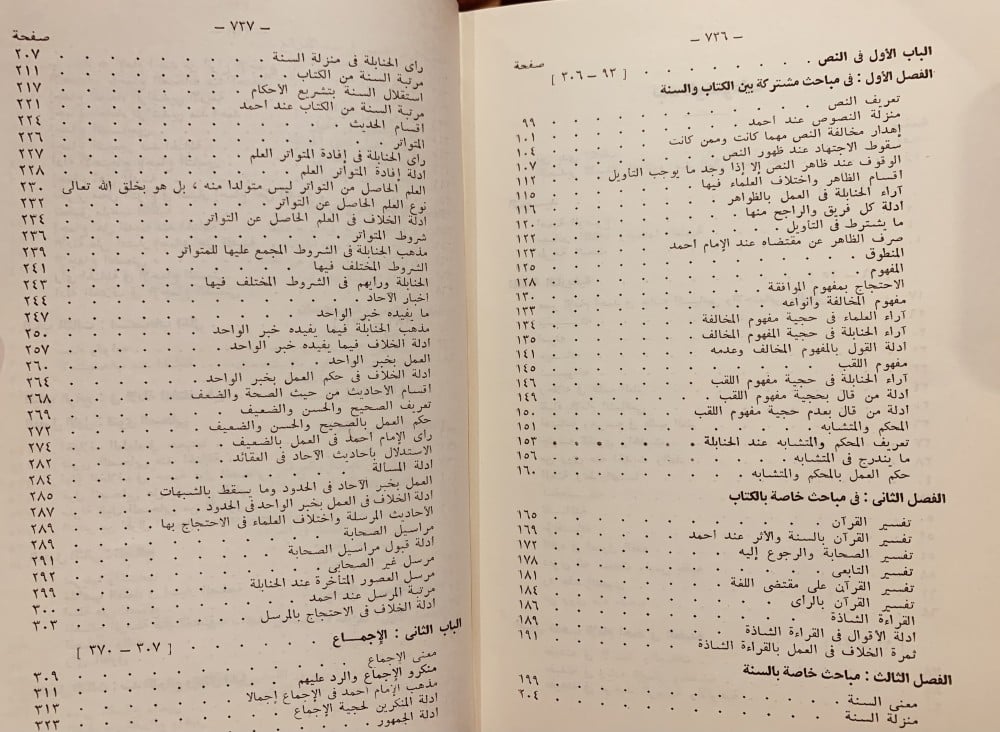 — ٧٣٦ —
صفحة
الباب الأول فى النص . . . . . . [ ٩٣ – ٣٠٦ ]
الفصل الأول : فى مباحث مشتركة بين الكتاب والسنة
تعريف النص . . . . . . ٩٩
منزلة النصوص عند احمد . . . . . . ١٠١
إهدار مخالفة النص مهما كانت وممن كانت . . . . . . ١٠٤
سقوط الاجتهاد عند ظهور النص . . . . . . ١٠٧
الوقوف عند ظاهر النص إلا إذا وجد ما يوجب التاويل . . . . . . ١١٢
اقسام الظاهر واختلاف العلماء فيها . . . . . . ١١٥
آراء الحنابلة فى العمل بالظواهر . . . . . . ١١٦
ادلة كل فريق والراجح منها . . . . . . ١٢٠
ما يشترط فى التاويل . . . . . . ١٢٢
صرف الظاهر عن مقتضاه عند الإمام احمد . . . . . . ١٢٣
المنطوق . . . . . . ١٢٥
المفهوم . . . . . . ١٢٨
الاحتجاج بمفهوم الموافقة . . . . . . ١٣٠
مفهوم المخالفة وانواعه . . . . . . ١٣٣
آراء العلماء فى حجية مفهوم المخالفة . . . . . . ١٣٤
آراء الحنابلة فى حجية مفهوم المخالف . . . . . . ١٣٥
ادلة القول بالمفهوم المخالف وعدمه . . . . . . ١٤١
مفهوم اللقب . . . . . . ١٤٥
آراء الحنابلة فى حجية مفهوم اللقب . . . . . . ١٤٦
ادلة من قال بحجية مفهوم اللقب . . . . . . ١٤٩
ادلة من قال بعدم حجية مفهوم اللقب . . . . . . ١٥٠
المحكم والمتشابه . . . . . . ١٥١
تعريف المحكم والمتشابه عند الحنابلة . . . . . . ١٥٣
ما يندرج فى المتشابه . . . . . . ١٥٦
حكم العمل بالمحكم والمتشابه . . . . . . ١٦٠
الفصل الثانى : فى مباحث خاصة بالكتاب
تفسير القرآن . . . . . . ١٦٥
تفسير القرآن بالسنة والأثر عند احمد . . . . . . ١٦٩
تفسير الصحابة والرجوع إليه . . . . . . ١٧٢
تفسير التابعى . . . . . . ١٧٨
تفسير القرآن على مقتضى اللغة . . . . . . ١٨١
تفسير القرآن بالراى . . . . . . ١٨٤
القراءة الشاذة . . . . . . ١٨٦
ادلة الأقوال فى القراءة الشاذة . . . . . . ١٨٩
ثمرة الخلاف فى العمل بالقراءة الشاذة . . . . . . ١٩١
الفصل الثالث : مباحث خاصة بالسنة
معنى السنة . . . . . . ١٩٩
منزلة السنة . . . . . . ٢٠٤
— ٧٣٧ —
صفحة
راى الحنابلة فى منزلة السنة . . . . . . ٢٠٧
مرتبة السنة من الكتاب . . . . . . ٢١١
استقلال السنة بتشريع الأحكام . . . . . . ٢١٧
مرتبة السنة من الكتاب عند احمد . . . . . . ٢٢١
اقسام الحديث . . . . . . ٢٢٤
المتواتر . . . . . . ٢٢٦
راى الحنابلة فى إفادة المتواتر العلم . . . . . . ٢٢٧
ادلة إفادة المتواتر العلم . . . . . . ٢٢٨
العلم الحاصل من التواتر ليس متولدا منه ، بل هو بخلق الله تعالى ٢٣٠
نوع العلم الحاصل عن التواتر . . . . . . ٢٣٢
ادلة الخلاف فى العلم الحاصل عن التواتر . . . . . . ٢٣٤
شروط المتواتر . . . . . . ٢٣٦
مذهب الحنابلة فى الشروط المجمع عليها للمتواتر . . . . . . ٢٣٩
الشروط المختلف فيها . . . . . . ٢٤١
الحنابلة ورايهم فى الشروط المختلف فيها . . . . . . ٢٤٣
اخبار الآحاد . . . . . . ٢٤٤
ما يفيده خبر الواحد . . . . . . ٢٤٧
مذهب الحنابلة فيما يفيده خبر الواحد . . . . . . ٢٥٠
ادلة الخلاف فيما يفيده خبر الواحد . . . . . . ٢٥٧
العمل بخبر الواحد . . . . . . ٢٦٠
ادلة الخلاف فى حكم العمل بخبر الواحد . . . . . . ٢٦٤
اقسام الأحاديث من حيث الصحة والضعف . . . . . . ٢٦٨
تعريف الصحيح والحسن والضعيف . . . . . . ٢٦٩
حكم العمل بالصحيح والحسن والضعيف . . . . . . ٢٧٢
راى الإمام احمد فى العمل بالضعيف . . . . . . ٢٧٤
الاستدلال باحاديث الآحاد فى العقائد . . . . . . ٢٨٢
ادلة المسالة . . . . . . ٢٨٤
العمل بخبر الآحاد فى الحدود وما يسقط بالشبهات . . . . . . ٢٨٥
ادلة الخلاف فى العمل بخبر الواحد فى الحدود . . . . . . ٢٨٧
الأحاديث المرسلة واختلاف العلماء فى الاحتجاج بها . . . . . . ٢٨٩
مراسيل الصحابة . . . . . . ٢٨٩
ادلة قبول مراسيل الصحابة . . . . . . ٢٩١
مرسل غير الصحابى . . . . . . ٢٩٢
مرسل العصور المتاخرة عند الحنابلة . . . . . . ٢٩٩
مرتبة المرسل عند احمد . . . . . . ٣٠٠
ادلة الخلاف فى الاحتجاج بالمرسل . . . . . . ٣٠٣
الباب الثانى : الإجمــاع . . . . . . [ ٣٠٧ – ٣٧٠ ]
معنى الإجماع . . . . . . ٣٠٩
منكرو الإجماع والرد عليهم . . . . . . ٣١١
مذهب الإمام احمد فى الإجماع إجمالا . . . . . . ٣١٣
ادلة المنكرين لحجية الإجماع . . . . . . ٣٢٣
ادلة الجمهور . . . . . .